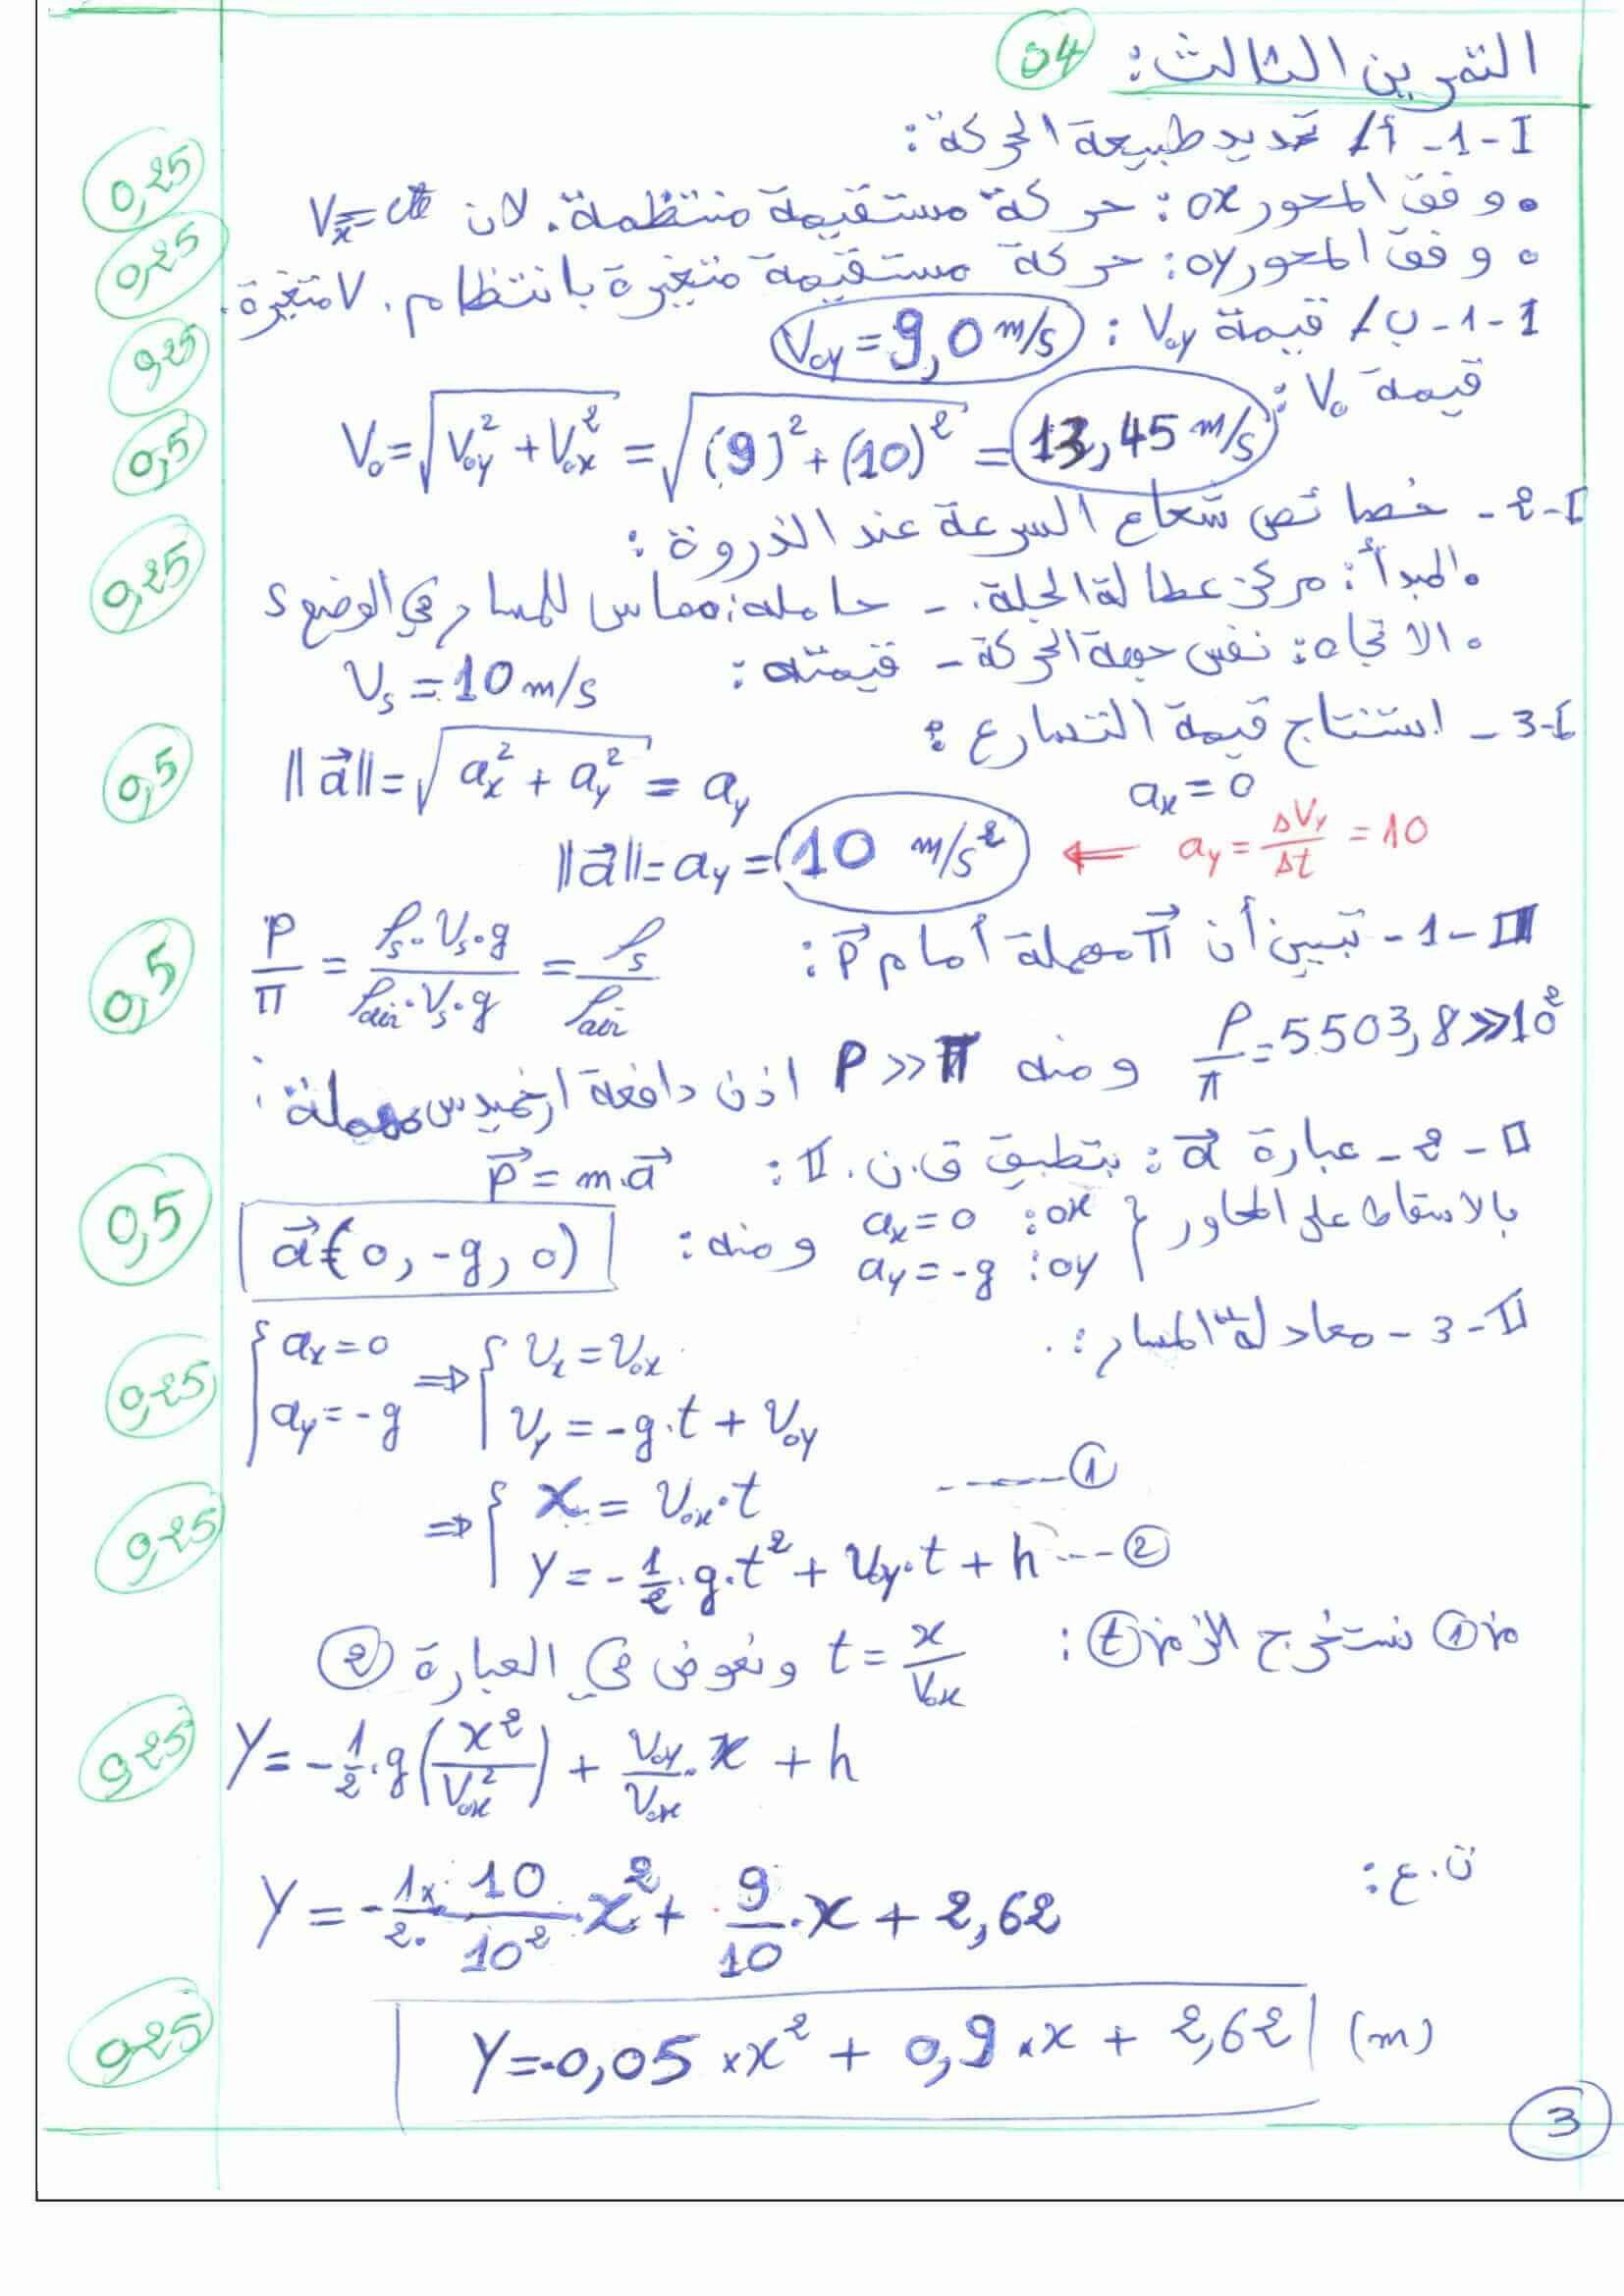 التمرين الثالث: 04
I-1-أ/ تحديد طبيعة الحركة:
0,25
• وفق المحور ox: حركة مستقيمة منتظمة. لان Vx = cte
0,25
• وفق المحور oy: حركة مستقيمة متغيرة بانتظام. V متغيرة.
I-1-ب/ قيمة V₀y: V₀y = 9,0 m/s
0,25
قيمة V₀:
V₀ = √(V₀y² + V₀x²) = √((9)² + (10)²) = 13,45 m/s
0,5
I-2- خصائص شعاع السرعة عند الذروة:
0,25
• المبدأ: مركز عطالة الجلة. - حامله: مماس للمسار في الوضع S
• الاتجاه: نفس جهة الحركة - قيمته: Vs = 10 m/s
I-3- استنتاج قيمة التسارع:
0,5
||a⃗|| = √(ax² + ay²) = ay
ax = 0
ay = ΔVy/Δt = 10
||a⃗|| = ay = 10 m/s² ⇐
II-1- تبيين أن π⃗ مهملة أمام p⃗:
0,5
P/π = ρs·Vs·g / ρair·Vs·g = ρs/ρair
P/π = 5503,8 >> 10² ومنه P >> π اذن دافعة ارخميدس مهملة:
II-2- عبارة a⃗: بتطبيق ق.ن.II: p⃗ = m.a⃗
0,5
بالاسقاط على المحاور { ox: ax = 0
oy: ay = -g
ومنه: a⃗ = (0, -g, 0)
II-3- معادلة المسار:
0,25
{ ax = 0 ⇒ { Vx = V₀x
ay = -g Vy = -g.t + V₀y
0,25
⇒ { x = V₀x.t ------①
y = -1/2.g.t² + V₀y.t + h ---②
من ① نستخرج الزمن (t): t = x/V₀x ونعوض في العبارة ②
0,25
Y = -1/2.g(x²/V₀x²) + V₀y/V₀x.x + h
ت.ع:
Y = -1/2 × 10/10².x² + 9/10.x + 2,62
0,25
Y = -0,05 × x² + 0,9 × x + 2,62 (m)
3